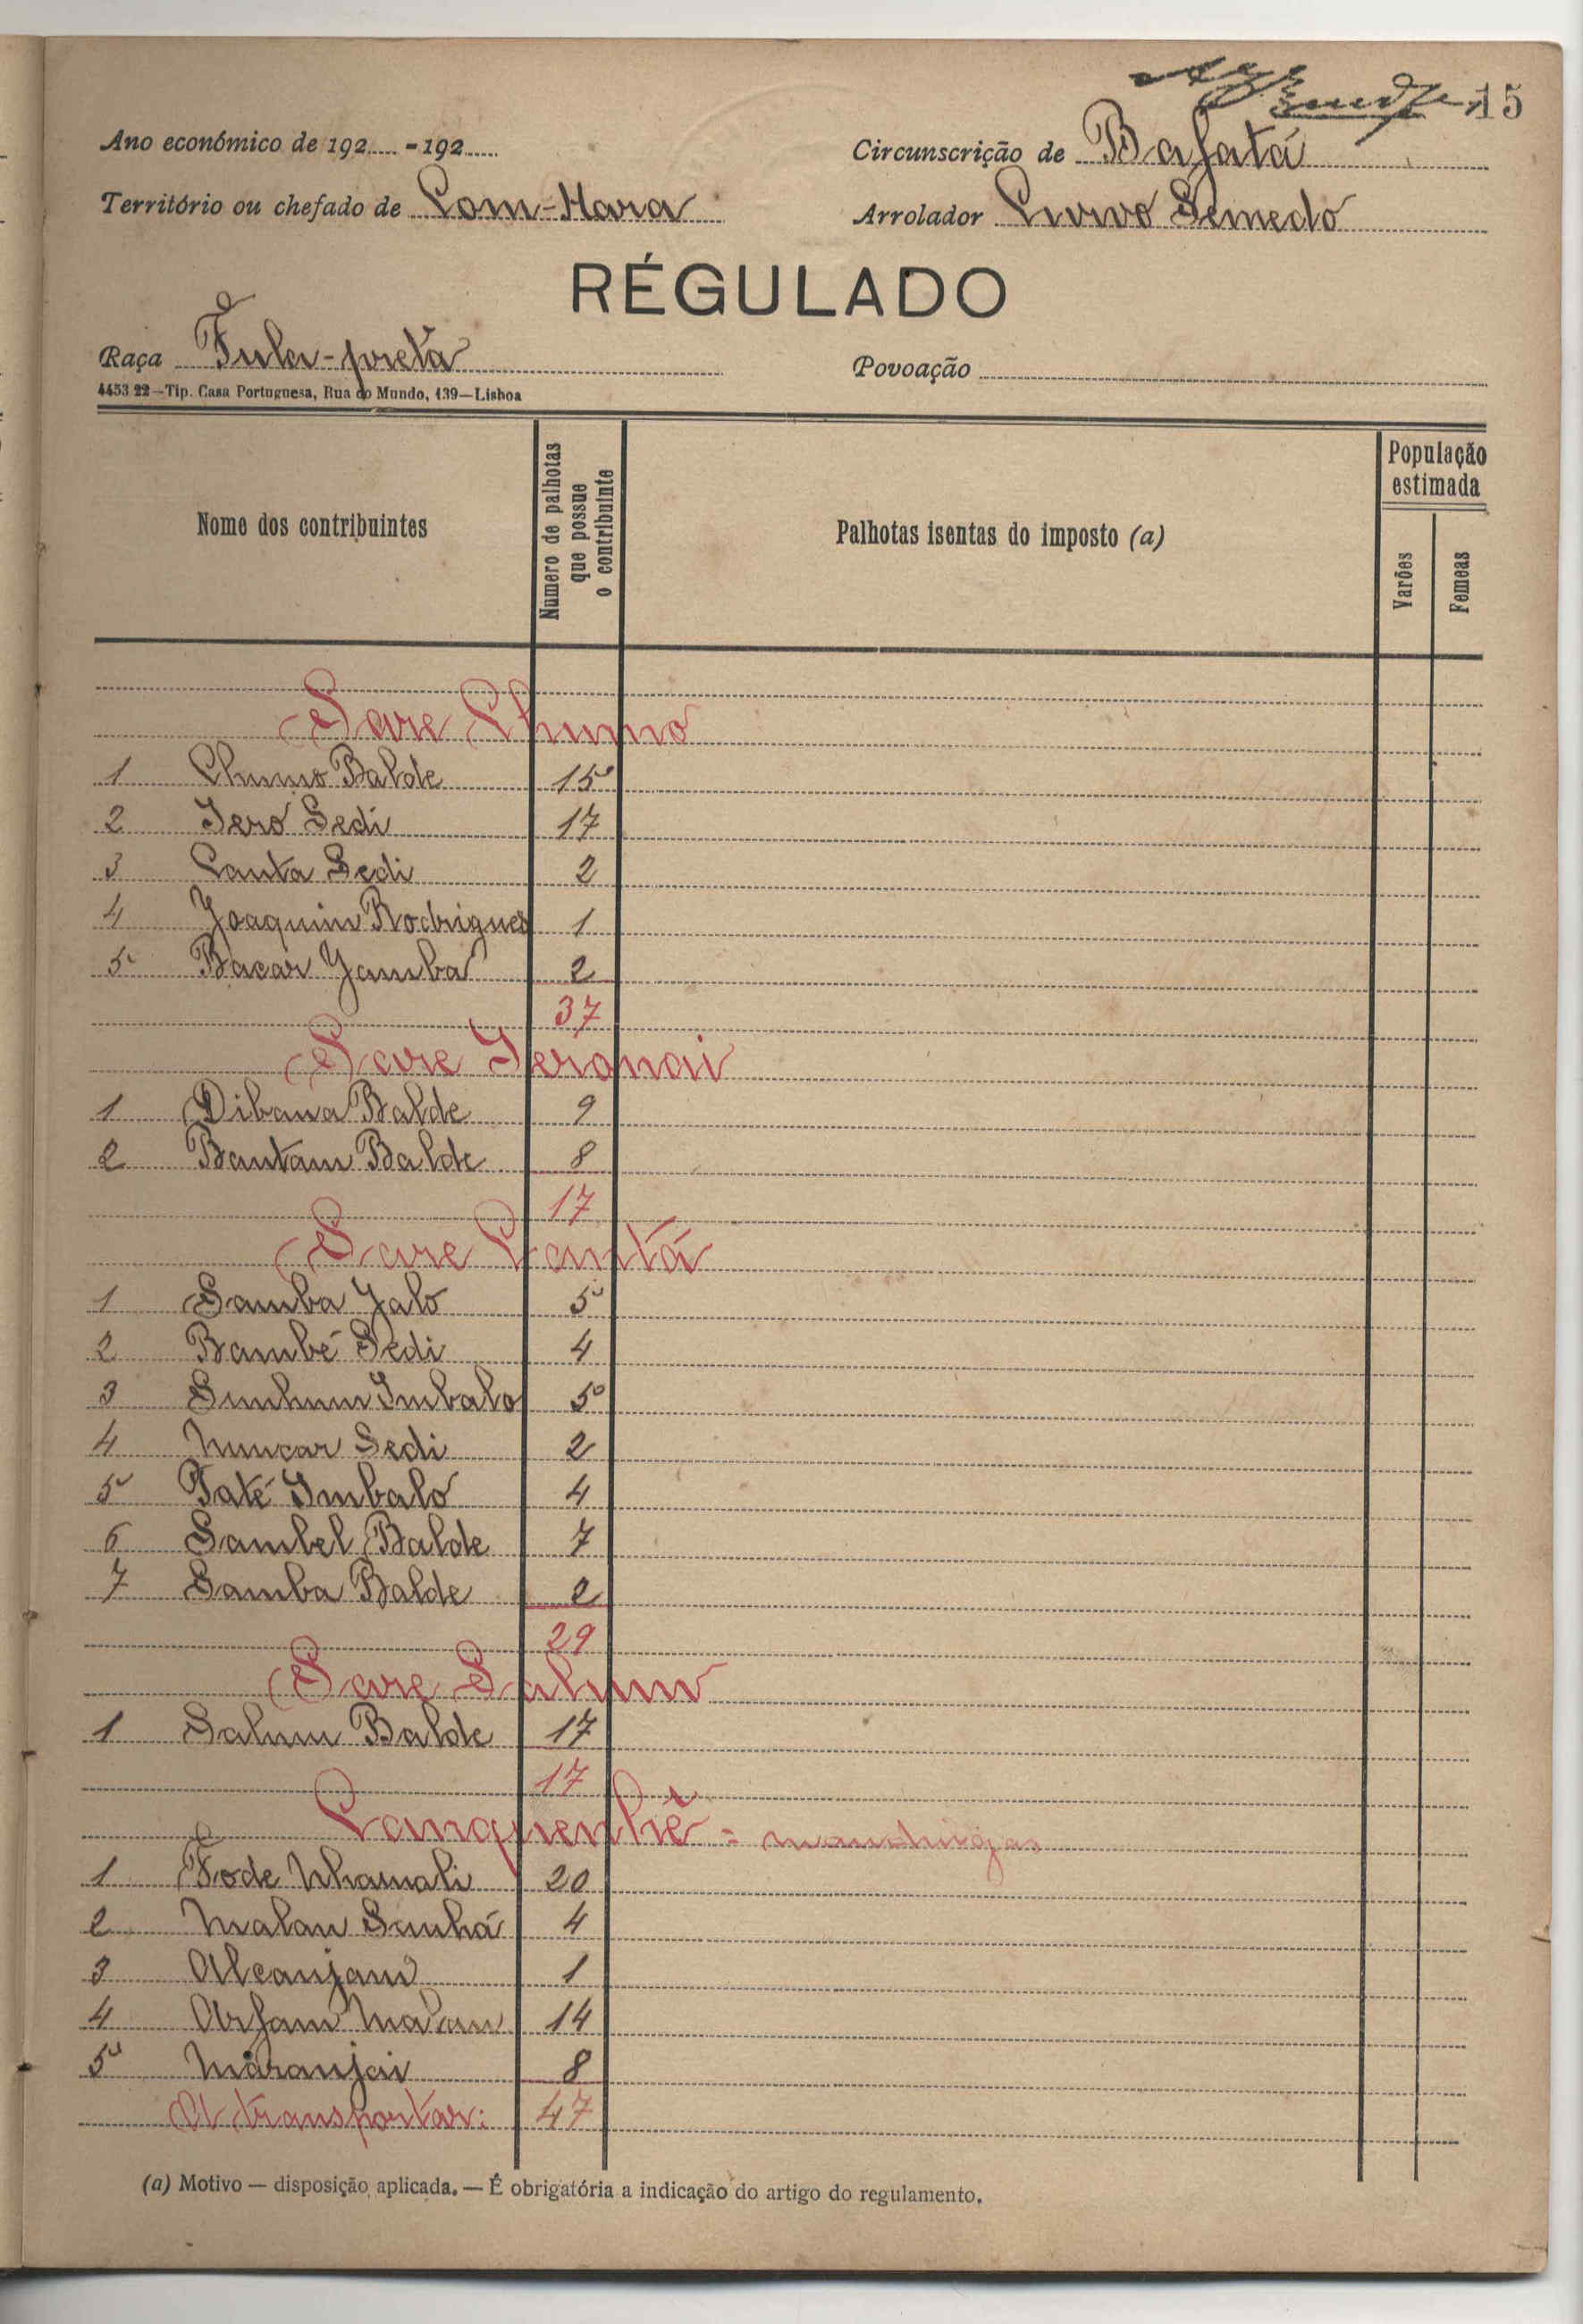 15
Ano económico de 192..... - 192.....
Circunscrição de Bafatá
Território ou chefado de Com-Hara
Arrolador Livio Semedo
RÉGULADO
Raça Fula-preta
Povoação
4453 22—Tip. Casa Portuguesa, Rua do Mundo, 139—Lisboa
Nome dos contribuintes
Numero de palhotas que possue o contribuinte
Palhotas isentas do imposto (a)
População estimada
Varões
Femeas
Sare Chumo
1 Chumo Balde 15
2 Iero Sedi 17
3 Canta Sedi 2
4 Joaquim Rodrigues 1
5 Bacar Jamba 2
37
Sare Ieronai
1 Dibana Balde 9
2 Bantam Balde 8
17
Sare Cantá
1 Samba Jalo 5
2 Bambé Sedi 4
3 Sunhum Imbalo 5
4 Nuncar Sedi 2
5 Paté Imbalo 4
6 Sambel Balde 7
7 Samba Balde 2
29
Sare Salum
1 Salum Balde 17
17
Canquenhé - mandingas
1 Fode Nhamali 20
2 Malan Sanhá 4
3 Alcanjam 1
4 Arfam Malam 14
5 Maranjai 8
A transportar: 47
(a) Motivo — disposição aplicada. — É obrigatória a indicação do artigo do regulamento.